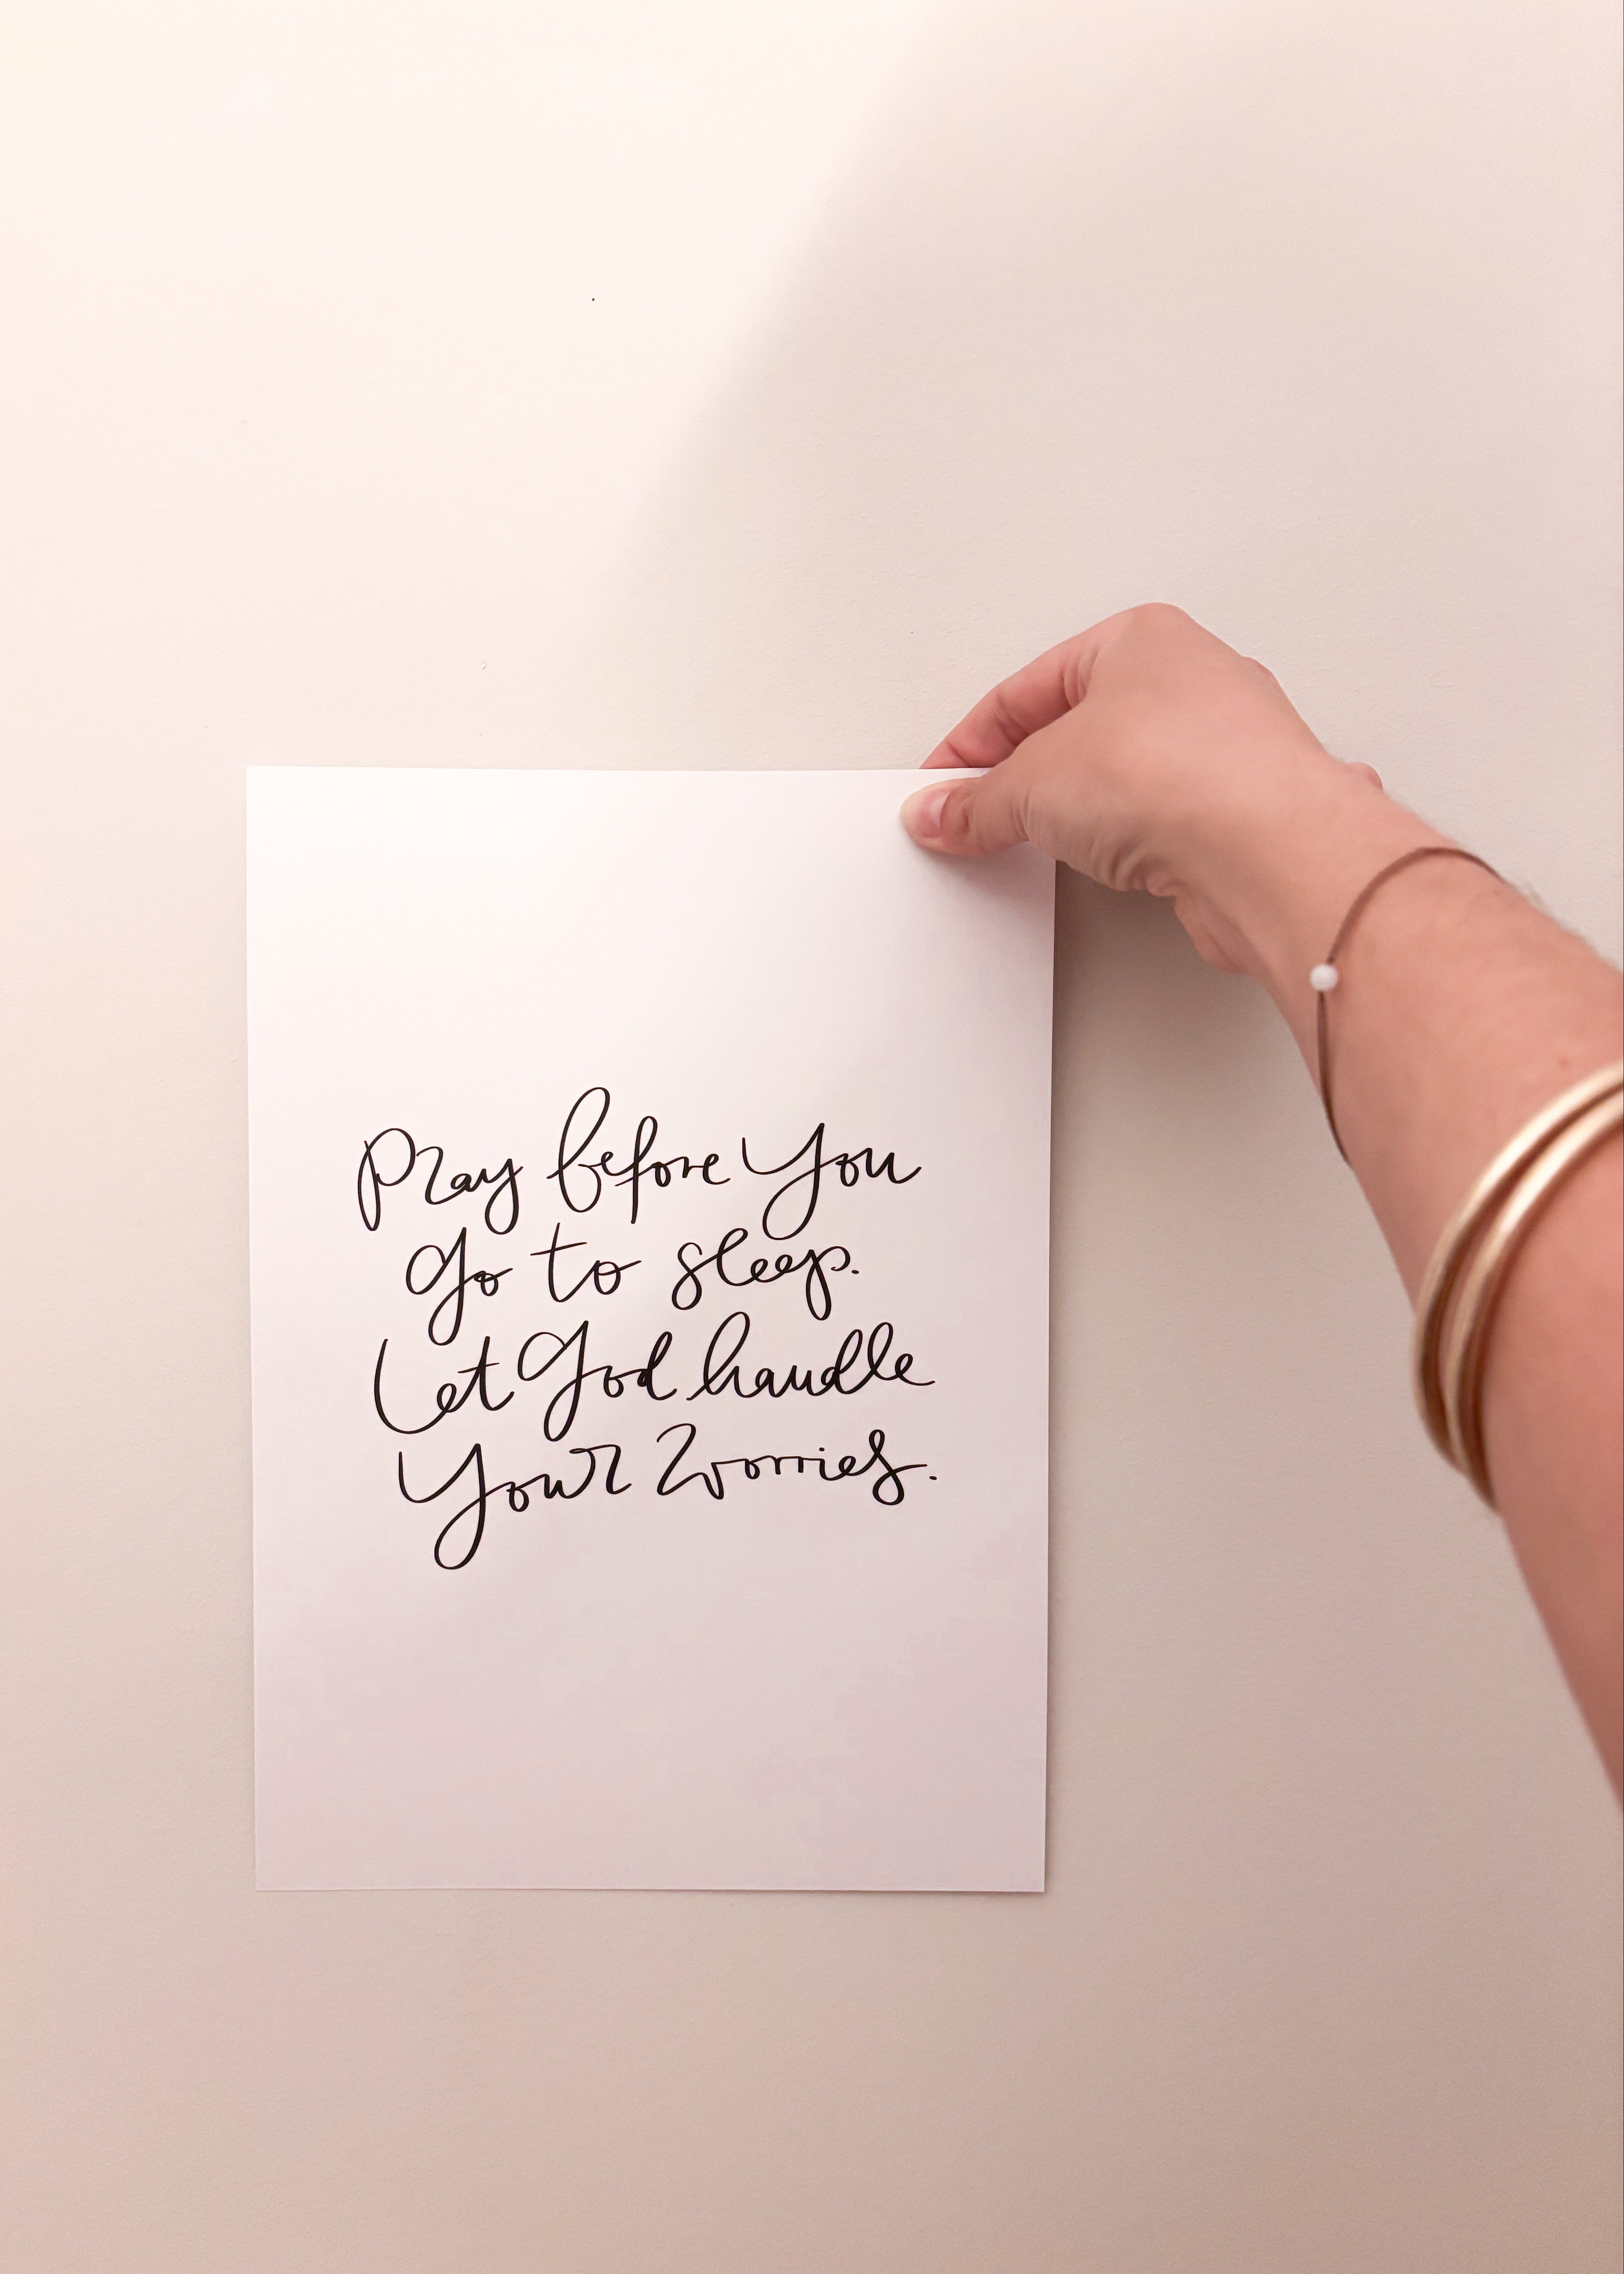 Pray before you
go to sleep.
Let God handle
your worries.